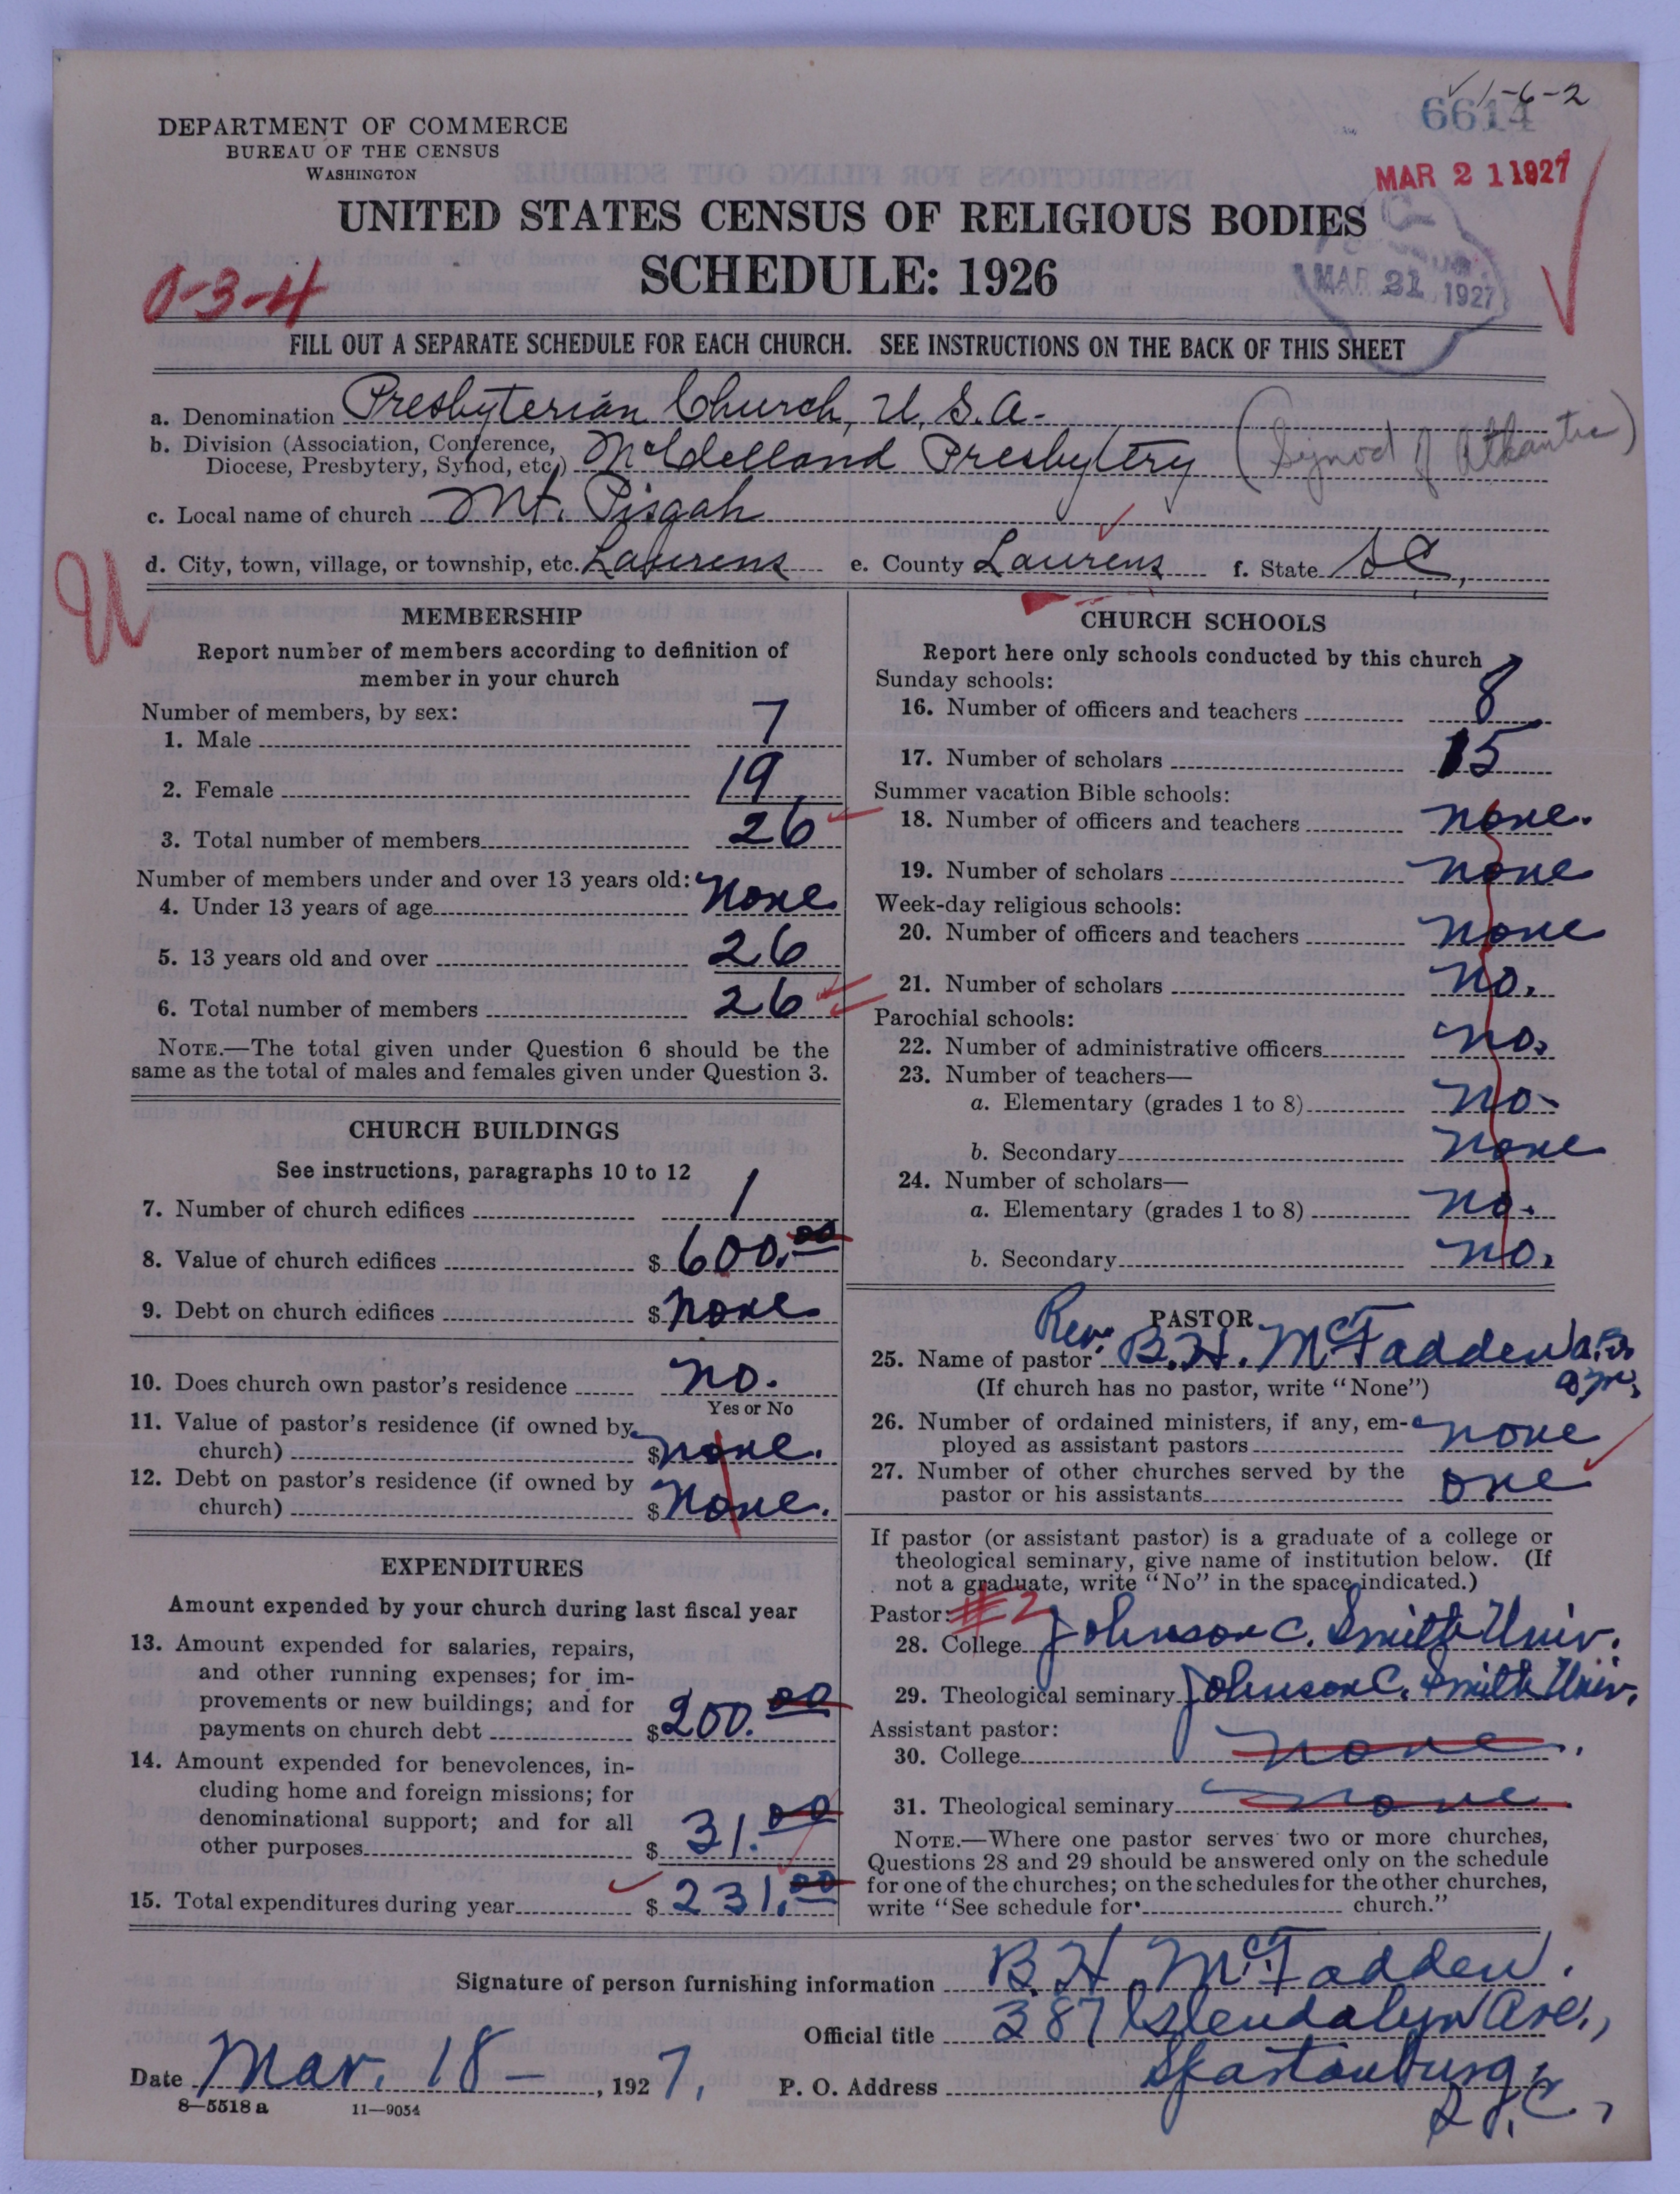 1-6-2
6614
DEPARTMENT OF COMMERCE
BUREAU OF THE CENSUS
WASHINGTON
MAR 21 1927
UNITED STATES CENSUS OF RELIGIOUS BODIES
SCHEDULE: 1926
MAR 21 1927
0-3-4
FILL OUT A SEPARATE SCHEDULE FOR EACH CHURCH. SEE INSTRUCTIONS ON THE BACK OF THIS SHEET
a. Denomination Presbyterian Church, U.S.A.
b. Division (Association, Conference, Diocese, Presbytery, Synod, etc.) McClelland Presbytery (Synod of Atlantic)
c. Local name of church Mt. Pisgah
d. City, town, village, or township, etc. Laurens e. County Laurens f. State S.C.
MEMBERSHIP
Report number of members according to definition of
member in your church
Number of members, by sex:
1. Male 7
2. Female 19
3. Total number of members 26
Number of members under and over 13 years old:
4. Under 13 years of age none
5. 13 years old and over 26
6. Total number of members 26
NOTE.—The total given under Question 6 should be the
same as the total of males and females given under Question 3.
CHURCH BUILDINGS
See instructions, paragraphs 10 to 12
7. Number of church edifices 1
8. Value of church edifices $ 600.00
9. Debt on church edifices $ none
10. Does church own pastor's residence no.
Yes or No
11. Value of pastor's residence (if owned by
church) $ none.
12. Debt on pastor's residence (if owned by
church) $ none.
EXPENDITURES
Amount expended by your church during last fiscal year
13. Amount expended for salaries, repairs,
and other running expenses; for im-
provements or new buildings; and for
payments on church debt $ 200.00
14. Amount expended for benevolences, in-
cluding home and foreign missions; for
denominational support; and for all
other purposes $ 31.00
15. Total expenditures during year $ 231.00
CHURCH SCHOOLS
Report here only schools conducted by this church
Sunday schools:
16. Number of officers and teachers 8
17. Number of scholars 15
Summer vacation Bible schools:
18. Number of officers and teachers none.
19. Number of scholars none
Week-day religious schools:
20. Number of officers and teachers none
21. Number of scholars no.
Parochial schools:
22. Number of administrative officers no.
23. Number of teachers—
a. Elementary (grades 1 to 8) no.
b. Secondary none
24. Number of scholars—
a. Elementary (grades 1 to 8) no.
b. Secondary no.
PASTOR
25. Name of pastor Rev. B.H. McFadden
(If church has no pastor, write "None")
26. Number of ordained ministers, if any, em-
ployed as assistant pastors none
27. Number of other churches served by the
pastor or his assistants one
If pastor (or assistant pastor) is a graduate of a college or
theological seminary, give name of institution below. (If
not a graduate, write "No" in the space indicated.)
Pastor: #2
28. College Johnson C. Smith Univ.
29. Theological seminary Johnson C. Smith Univ.
Assistant pastor:
30. College none.
31. Theological seminary none
NOTE.—Where one pastor serves two or more churches,
Questions 28 and 29 should be answered only on the schedule
for one of the churches; on the schedules for the other churches,
write "See schedule for church."
Signature of person furnishing information B.H. McFadden.
Official title 387 Glendalyn Ave.,
Date Mar. 18— , 1927. P. O. Address Spartanburg,
S.C.,
8—5518 a 11—9054